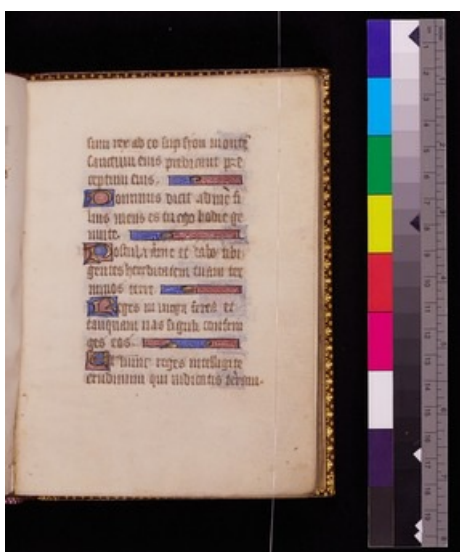 sum rex ab eo sup syon monte
sanctum eius predicans pre
ceptum eius.
Dominus dicit ad me fi
lius meus es tu ego hodie ge
nui te.
Postula a me et dabo tibi
gentes hereditatem tuam ter
minos terre.
Reges in virga ferrea et
tanquam vas figuli confrin
ges eos.
Et nunc reges intelligite
erudimini qui iudicatis terram.